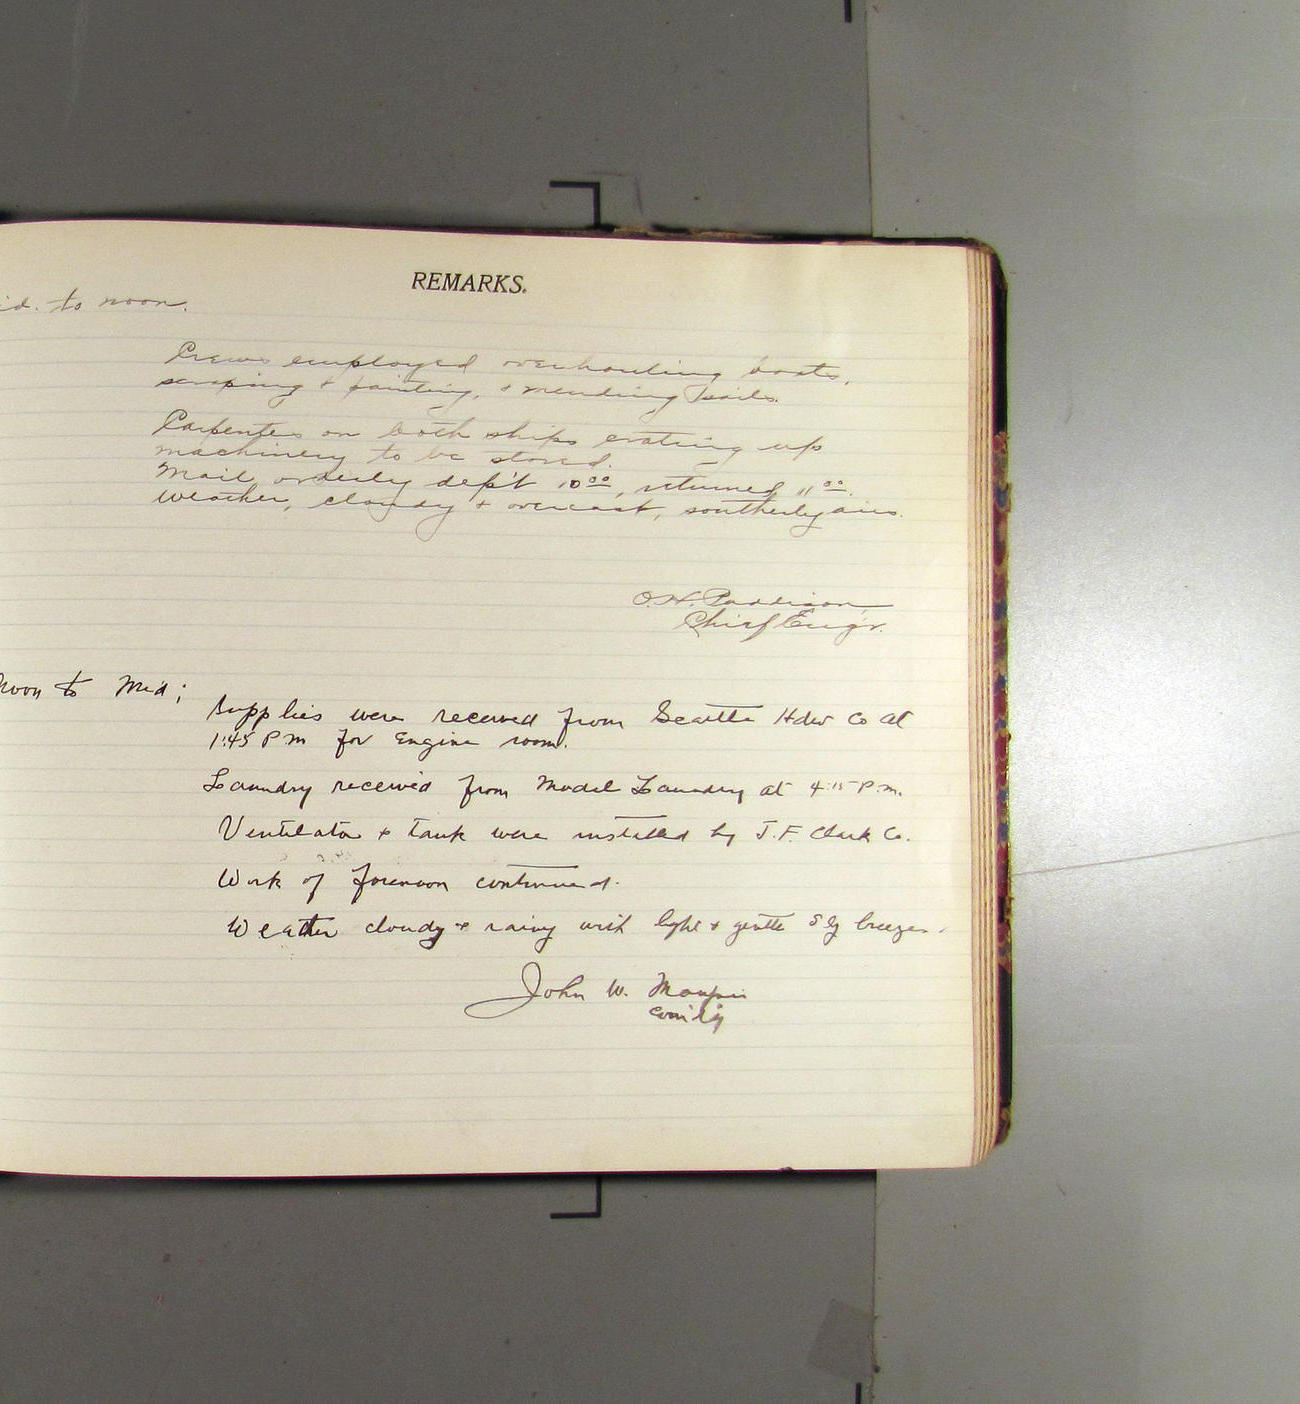 REMARKS.
id. to noon.
Crews employed overhauling boats,
scraping & painting, & mending sails.
Carpenters on both ships crating up
machinery to be stored.
Mail orderly dep't 10 00, returned 11 00.
Weather, cloudy & overcast, southerly airs.
O.H. Paddison
Chief Eng'r.
Noon to Mid;
Supplies were received from Seattle Hdw Co at
1:45 PM for Engine room.
Laundry received from Model Laundry at 4:15 P.M.
Ventilator & tank were installed by J.F. Clark Co.
Work of forenoon continued.
Weather cloudy & rainy with light & gentle S'ly breezes.
John W. Maupin
Com'd'g